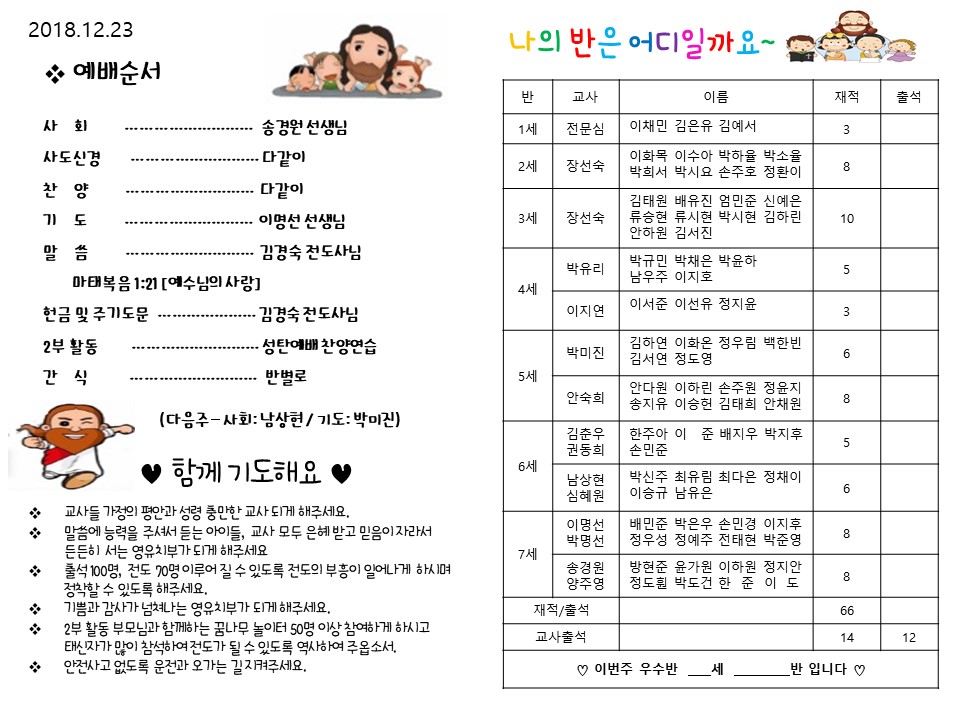 2018.12.23
❖ 예배순서
사 회 ………………………… 송경원 선생님
사도신경 ………………………… 다같이
찬 양 ………………………… 다같이
기 도 ………………………… 이명선 선생님
말 씀 ………………………… 김경숙 전도사님
마태복음 1:21 [예수님의 사랑]
헌금 및 주기도문 ………………… 김경숙 전도사님
2부 활동 ………………………… 성탄예배 찬양연습
간 식 ………………………… 반별로
(다음주 – 사회: 남상현 / 기도: 박미진)
♥ 함께 기도해요 ♥
❖ 교사들 가정의 평안과 성령 충만한 교사 되게 해주세요.
❖ 말씀에 능력을 주셔서 듣는 아이들, 교사 모두 은혜 받고 믿음이 자라서
든든히 서는 영유치부가 되게 해주세요
❖ 출석 100명, 전도 70명 이루어 질 수 있도록 전도의 부흥이 일어나게 하시며
정착할 수 있도록 해주세요.
❖ 기쁨과 감사가 넘쳐나는 영유치부가 되게 해주세요.
❖ 2부 활동 부모님과 함께하는 꿈나무 놀이터 50명 이상 참여하게 하시고
태신자가 많이 참석하여 전도가 될 수 있도록 역사하여 주옵소서.
❖ 안전사고 없도록 운전과 오가는 길 지켜주세요.
나의 반은 어디일까요~
반 교사 이름 재적 출석
1세 전문심 이채민 김은유 김예서 3
2세 장선숙 이화목 이수아 박하율 박소율 8
박희서 박시요 손주호 정환이
3세 장선숙 김태원 배유진 엄민준 신예은 10
류승현 류시현 박시현 김하린
안하원 김서진
4세 박유리 박규민 박채은 박윤하 5
남우주 이지호
이지연 이서준 이선유 정지윤 3
5세 박미진 김하연 이화온 정우림 백한빈 6
김서연 정도영
안숙희 안다원 이하린 손주원 정윤지 8
송지유 이승헌 김태희 안채원
6세 김춘우 한주아 이 준 배지우 박지후 5
권동희 손민준
남상현 박신주 최유림 최다은 정채이 6
심혜원 이승규 남유은
7세 이명선 배민준 박은우 손민경 이지후 8
박명선 정우성 정예주 전태현 박준영
송경원 방현준 윤가원 이하원 정지안 8
양주영 정도훤 박도건 한 준 이 도
재적/출석 66
교사출석 14 12
♡ 이번주 우수반 ___세 ________반 입니다 ♡